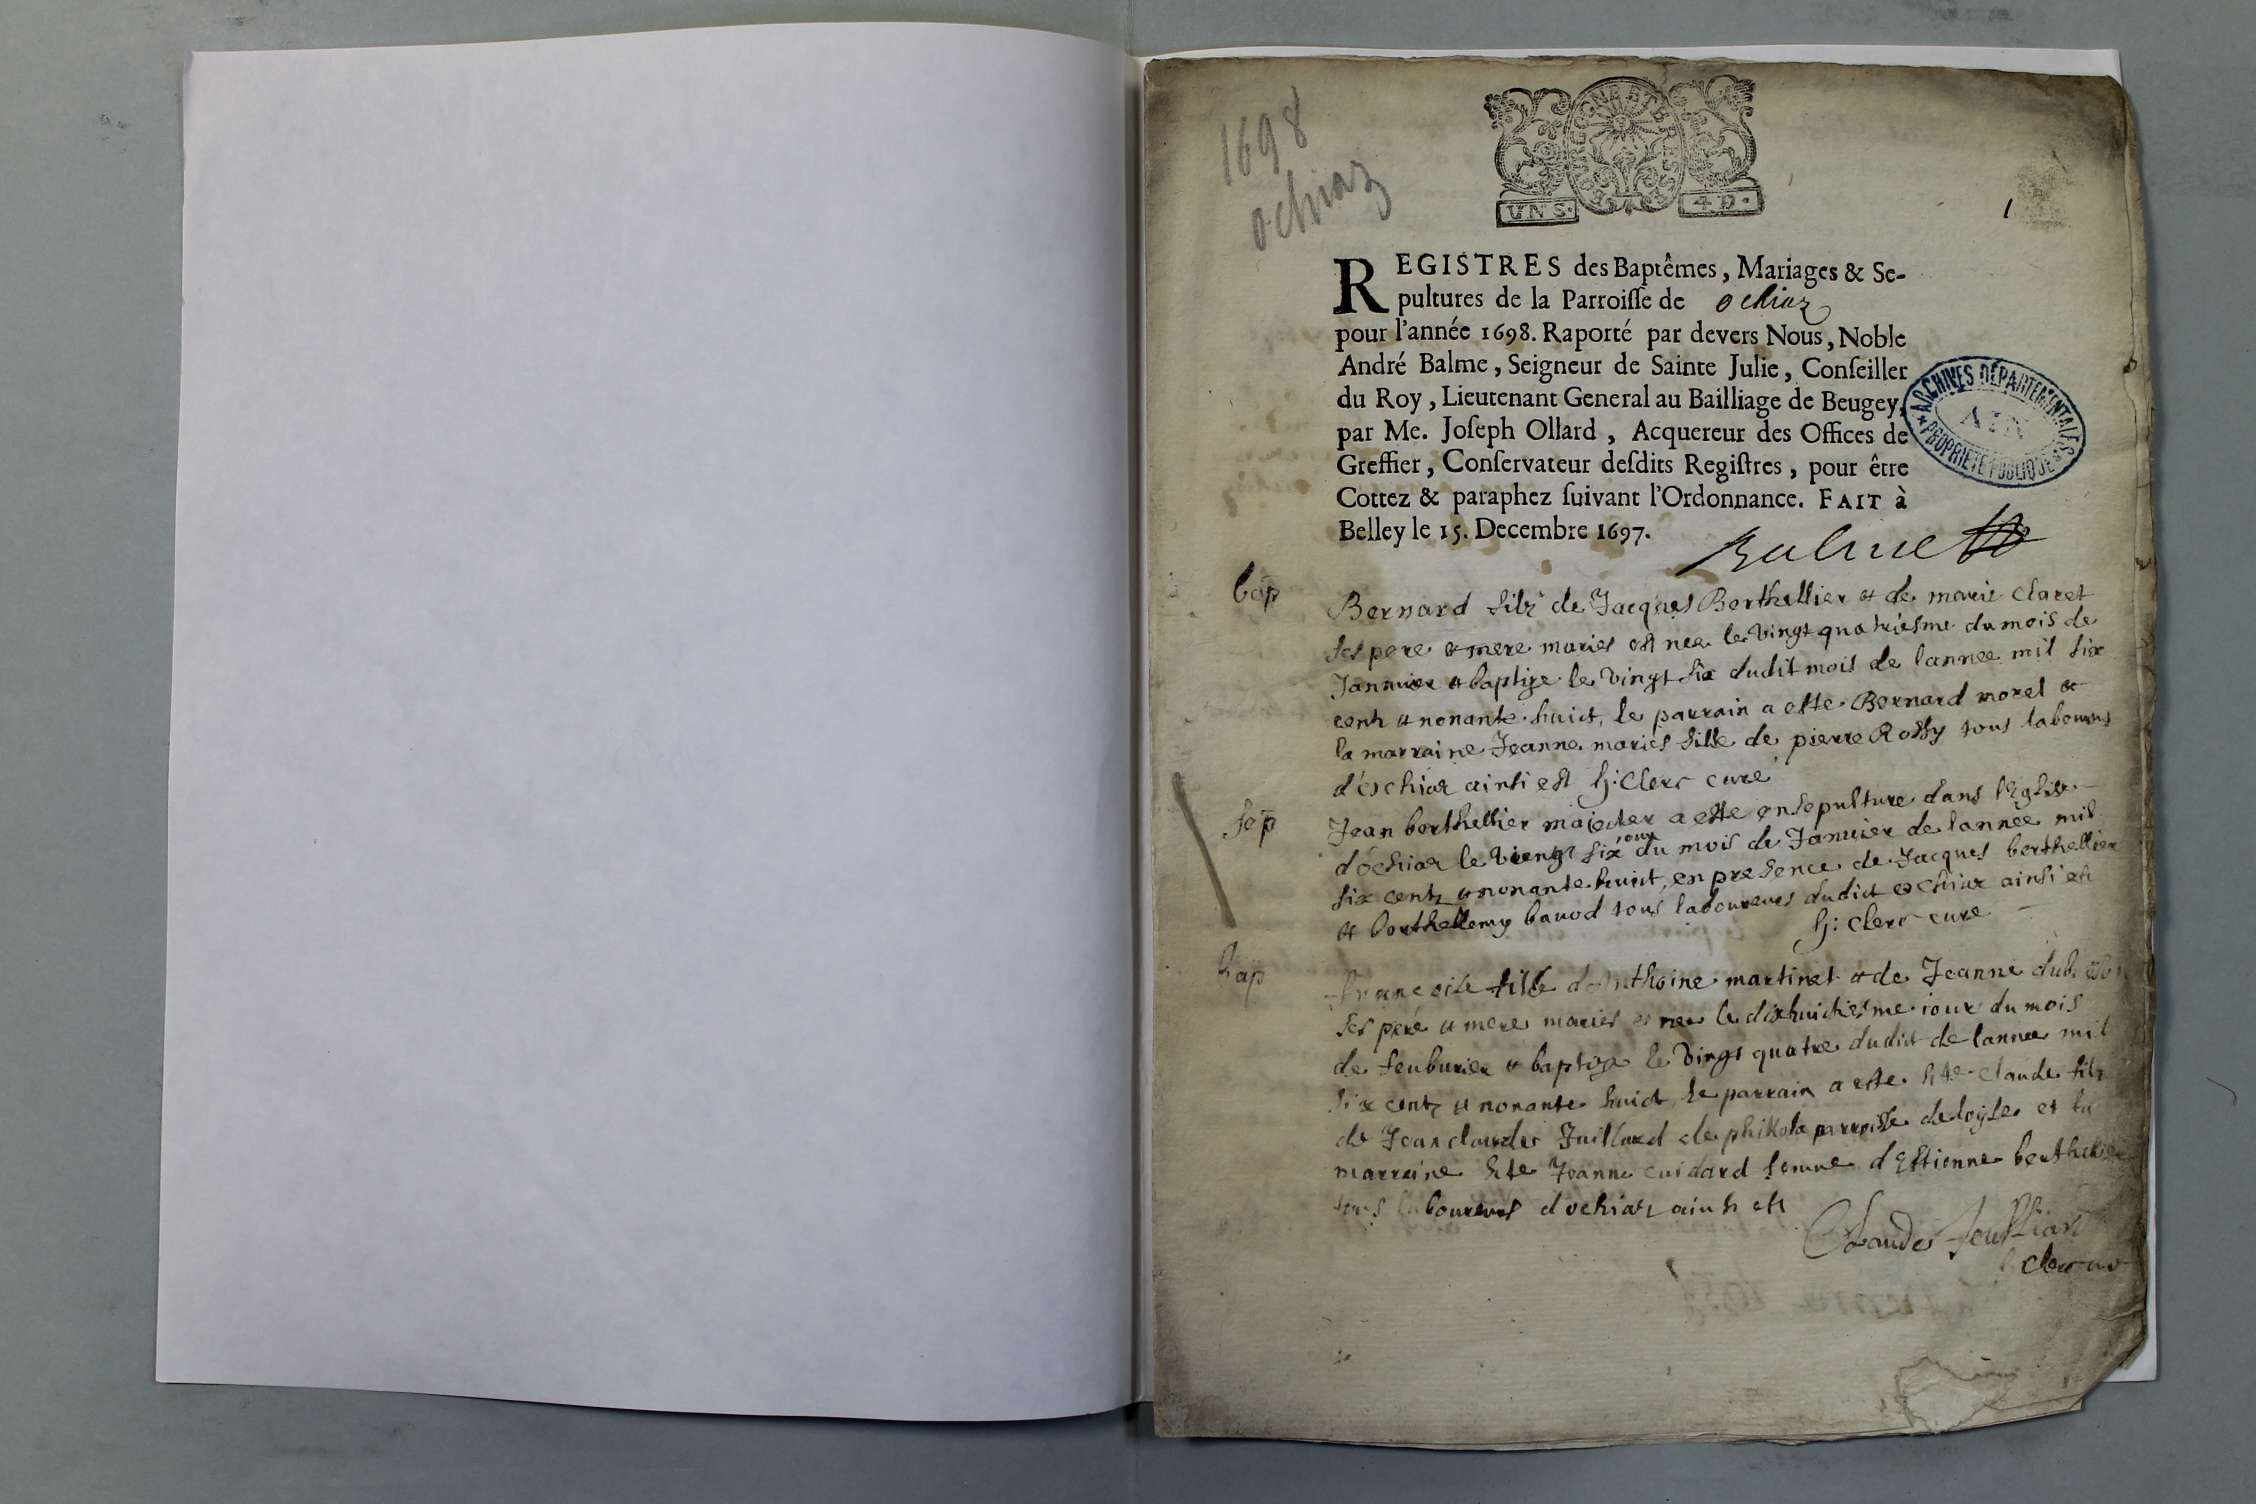 1698
ochiaz
VN S.
4 D.
1
REGISTRES des Baptêmes, Mariages & Se-
pultures de la Parroisse de ochiaz
pour l'année 1698. Raporté par devers Nous, Noble
André Balme, Seigneur de Sainte Julie, Conseiller
du Roy, Lieutenant General au Bailliage de Beugey,
par Me. Joseph Ollard, Acquereur des Offices de
Greffier, Conservateur desdits Registres, pour être
Cottez & paraphez suivant l'Ordonnance. FAIT à
Belley le 15. Decembre 1697.
ARCHIVES DÉPARTEMENTALES
AIN
PROPRIÉTÉ PUBLIQUE
Balme
bap
Bernard filz de Jacques Berthellier et de marie Claret
ses pere et mere maries est nee le vingt quatriesme du mois de
Januier et baptize le vingt six dudit mois de lannee mil six
centz et nonante huict, le parrain a este Bernard morel et
la marraine Jeanne maries fille de pierre Rossy tous laboureurs
d'eschiaz ainsi est h: Clerc curé
sep
Jean berthellier a este ensepulture dans l'Eglise
d'ochiaz le vingt six du mois de Januier de lannee mil
jour
six centz et nonante huict, en presence de Jacques berthellier
et berthellemy bavod tous laboureurs dudict ochiaz ainsi est
h: clerc cure
bap
francoise fille d'Anthoine martinet et de Jeanne
ses peré et mere maries est nee le dixhuictiesme iour du mois
de feuburier et baptize le vingt quatre dudict de lannee mil
six centz et nonante huict, le parrain a este hte claude filz
de Jean claude Juillard de parroisse de et la
marraine hte Jeanne cuidard femme d'Estienne berthellier
tous laboureurs d'ochiaz ainsi est
Claude
clerc cure